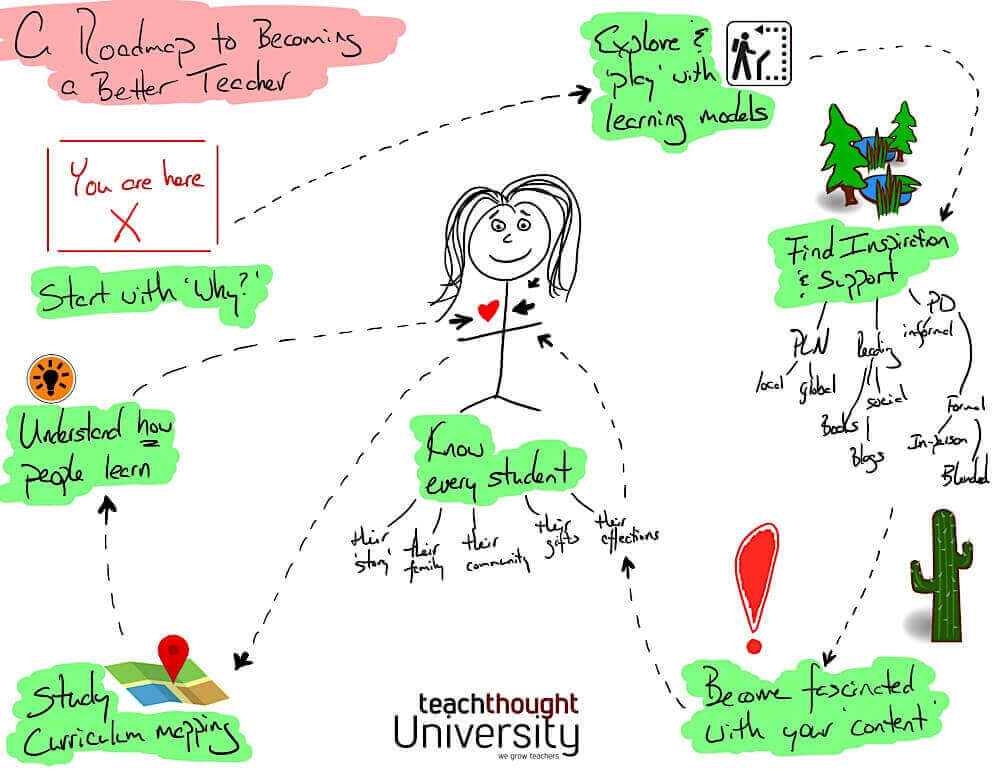 A Roadmap to Becoming
a Better Teacher
You are here
X
Start with 'Why?'
Explore &
'play' with
learning models
Find Inspiration
& Support
PLN
local
global
Reading
Books
Blogs
social
PD
informal
Formal
In-person
Blended
Become fascinated
with your 'content'
Know
every student
their
'story'
their
family
their
community
their
gifts
their
affections
Study
Curriculum mapping
Understand how
people learn
teachthought
University
we grow teachers